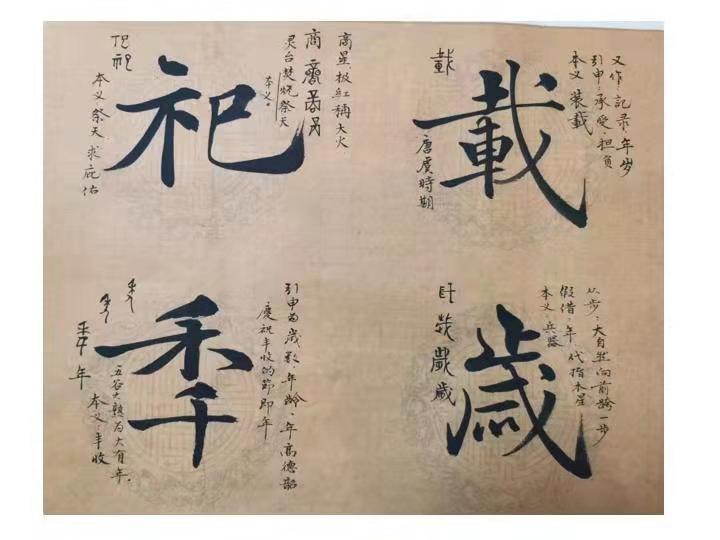 又作：記录、年岁
引申：承受、担负
本义 装載
載
載
唐虞時期
高星极红稱大火
商
灵台焚烧祭天
本义。
祀
祀
本义祭天求庇佑
从步：大自然向前跨一步
假借：年、代指木星
本义 兵器
歲
歲
引申为歲数、年龄、年高德韶
慶祝丰收的節即年
秊
五谷大熟为大有年。
本义：丰收
年